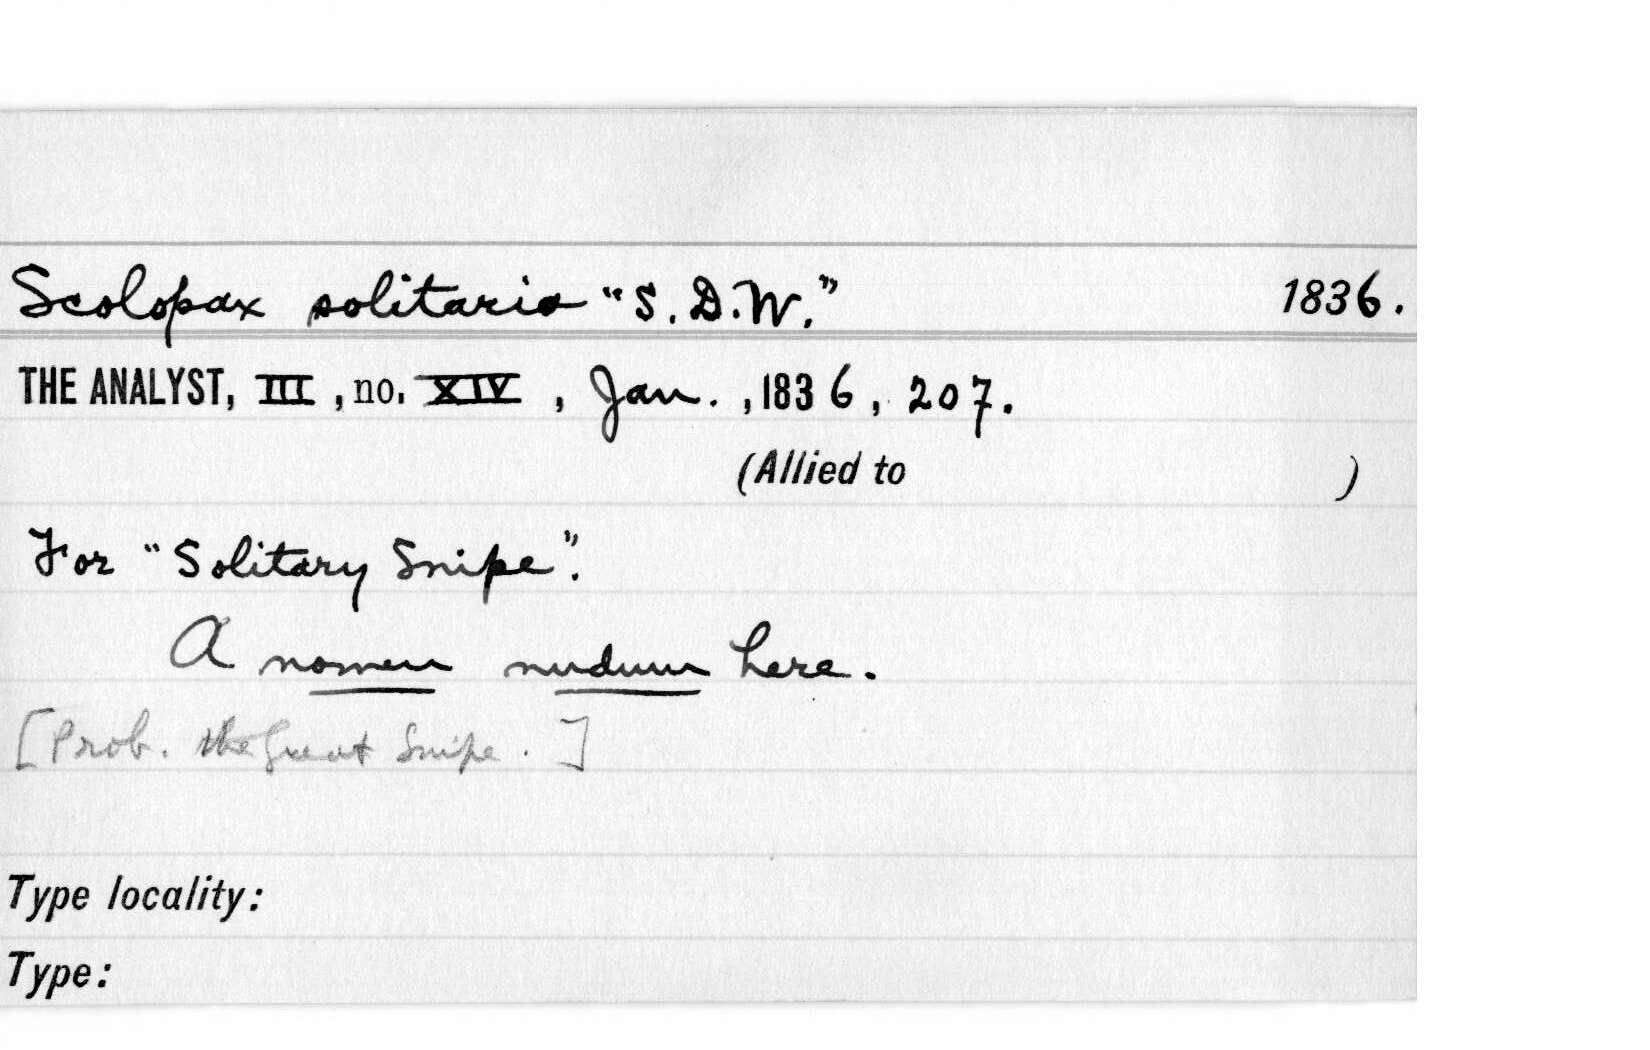 Scolopax solitaria "S.D.W." 1836.
THE ANALYST, III, no. XIV, Jan. ,1836, 207.
(Allied to )
For "Solitary Snipe".
A nomen nudum here.
[Prob. the Great Snipe.]
Type locality:
Type: